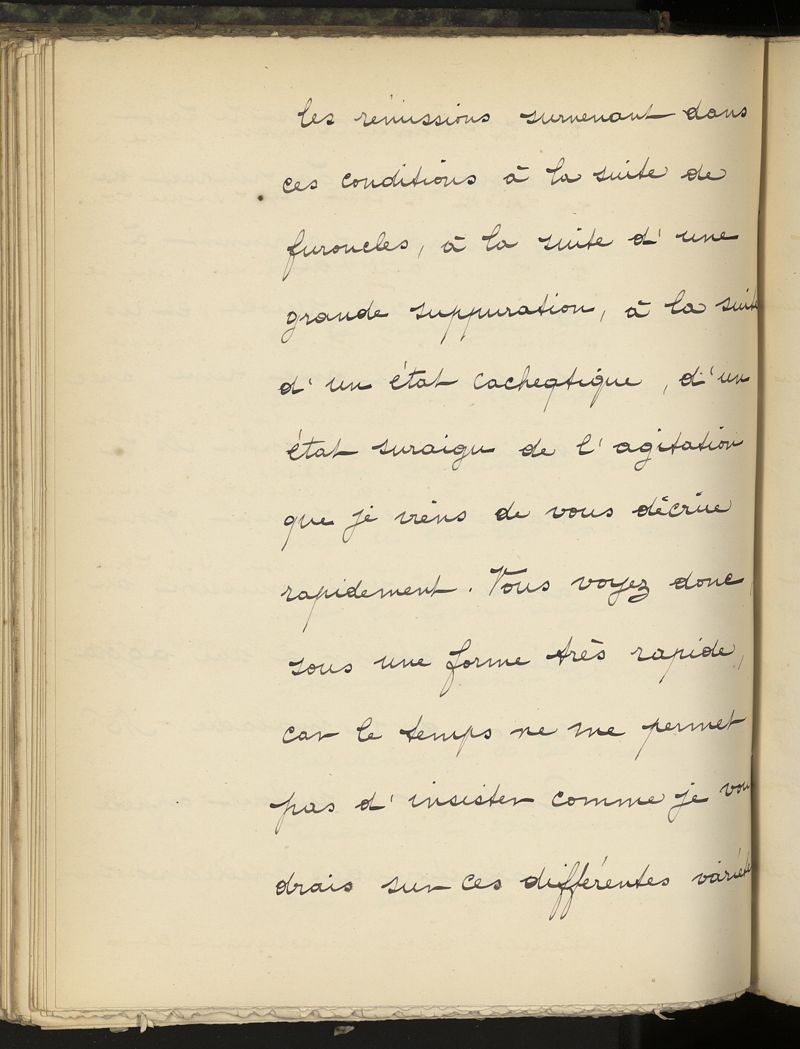 les rémissions survenant dans
ces conditions à la suite de
furoncles, à la suite d'une
grande suppuration, à la suite
d'un état cachectique, d'un
état suraigu de l'agitation
que je viens de vous décrire
rapidement. Vous voyez donc
sous une forme très rapide,
car le temps ne me permet
pas d'insister comme je vou
drais sur ces différentes variétés